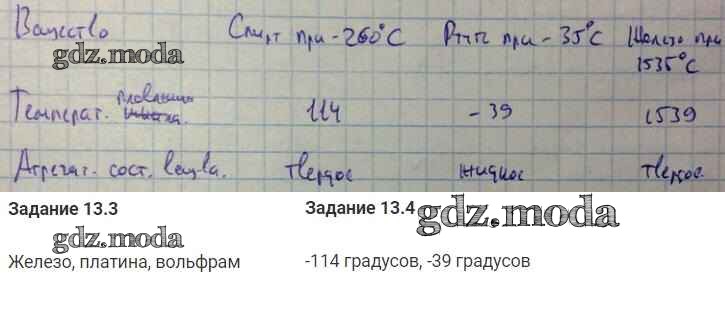 Вещество Спирт при -260°С Ртуть при -35°С Железо при 1535°С
gdz.moda
Температ. плавления 114 -39 1539
Агрегат. сост. вещ-ва. твердое жидкое твердое
Задание 13.3 Задание 13.4 gdz.moda
gdz.moda
Железо, платина, вольфрам -114 градусов, -39 градусов